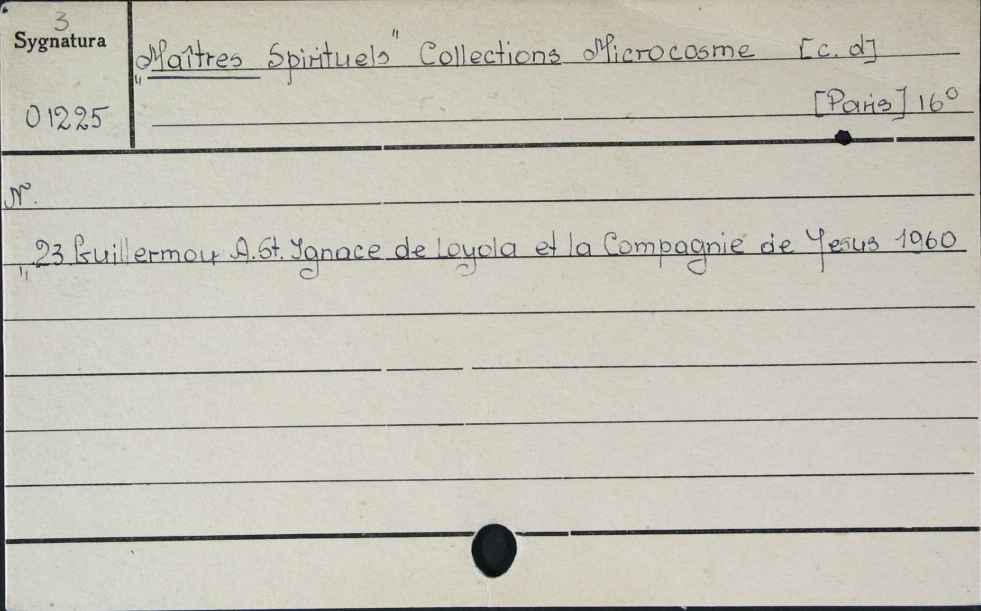 3
Sygnatura
01225
„Maîtres Spirituels" Collections Microcosme [c. d]
[Paris] 16°
N.
„23 Guillermou A. St. Ygnace de Loyola et la Compagnie de Yesus 1960